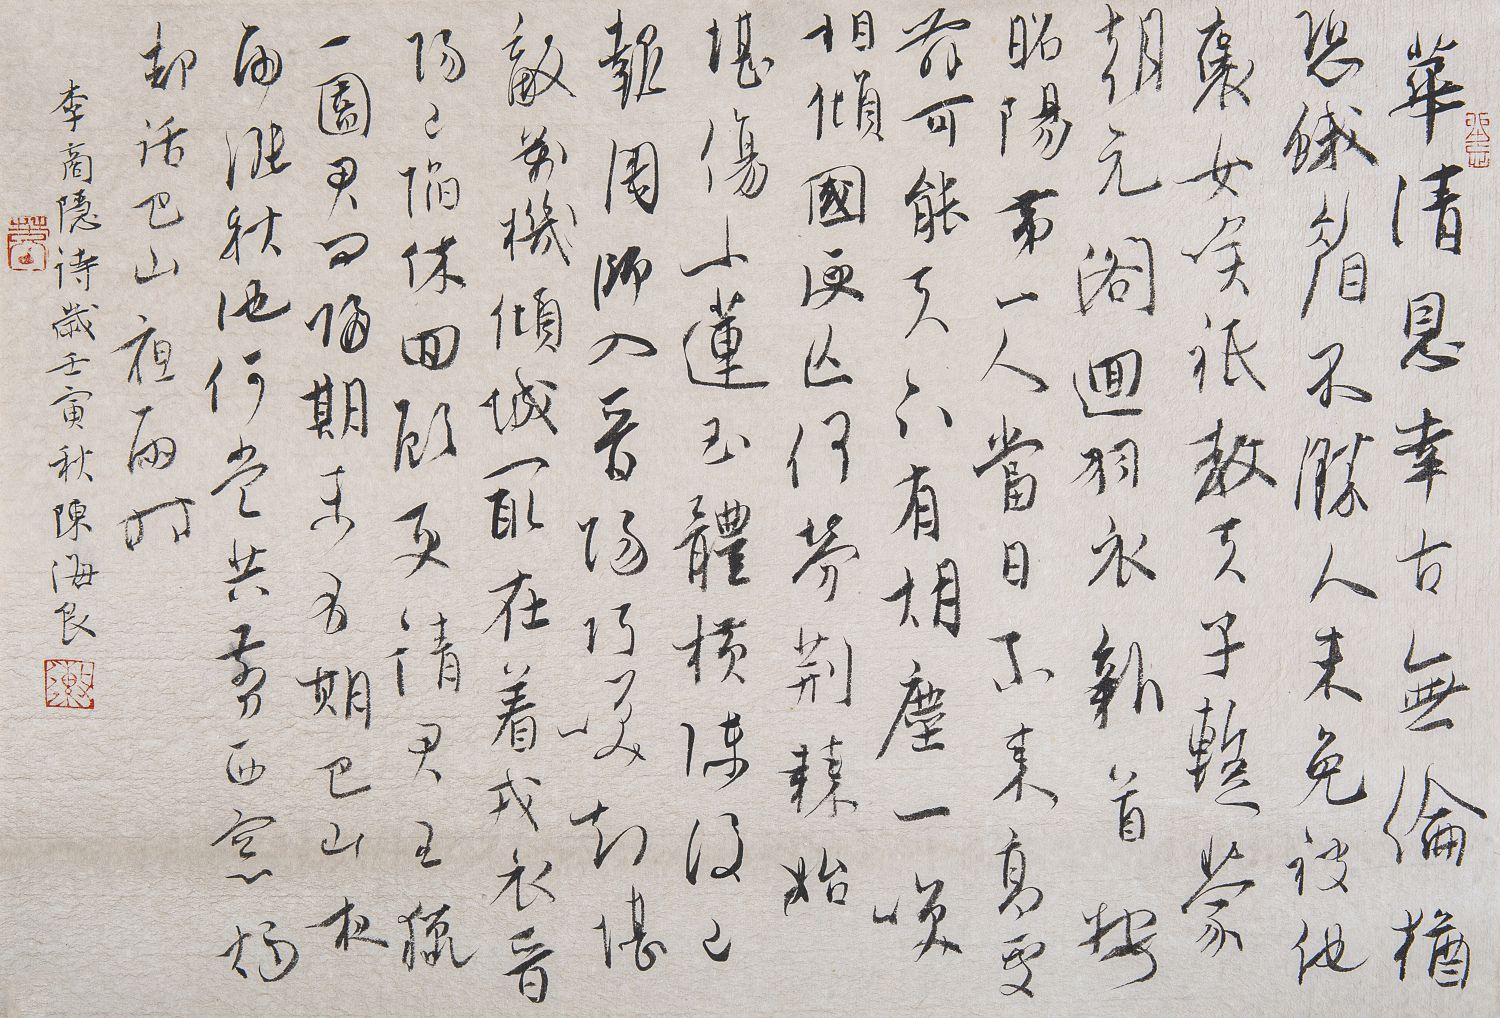 華清恩幸古無倫猶
恐蛾眉不勝人未免被他
褒女笑祇教天子暫蒙
朝元閣迥羽衣新首按
昭陽第一人當日不來高處
舞可能天下有胡塵一笑
相傾國便亡何勞荊棘始
堪傷小蓮玉體橫陳夜已
報周師入晉陽巧笑知堪
敵萬機傾城最在着戎衣晉
陽已陷休回顧更請君王獵
一圍君問歸期未有期巴山夜
雨漲秋池何當共剪西窓燭
却話巴山夜雨時
李商隱詩歲壬寅秋陳海良